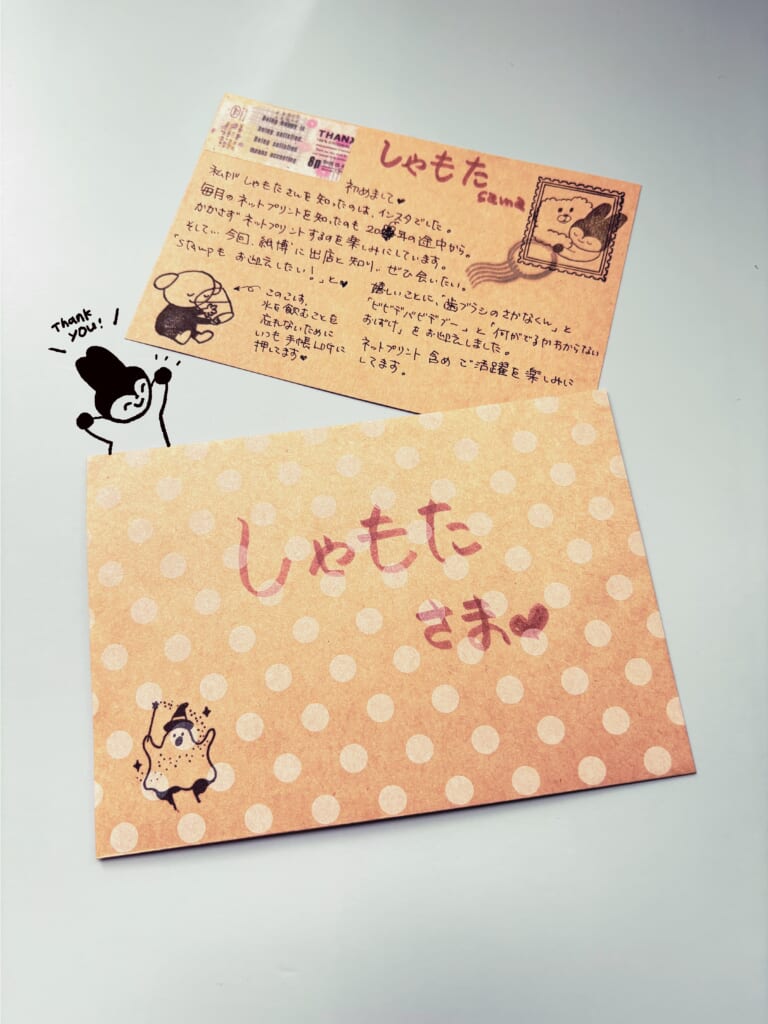 Being happy is
being satisfied.
Being satisfied
means accepting
THAN
8p
しゃもた
sama
初めまして♥
私が しゃもたさんを知ったのは、インスタでした。
毎月のネットプリントを知ったのも 20 年の途中から。
かかさずネットプリントするのを楽しみにしています。
そして、今回、紙博に出店と知り、ぜひ会いたい。
「stampも お迎えしたい！」と♥
このこは、
氷を飲むことを
忘れないために
いつも 手帳LOGに
押してます♥
嬉しいことに、「歯ブラシのさかなくん」と
「ビビデバビデブー」と「何がでるかわからない
おばけ」をお迎えしました。
ネットプリント含めご活躍を楽しみに
してます。
Thank
you!
しゃもた
さま♥